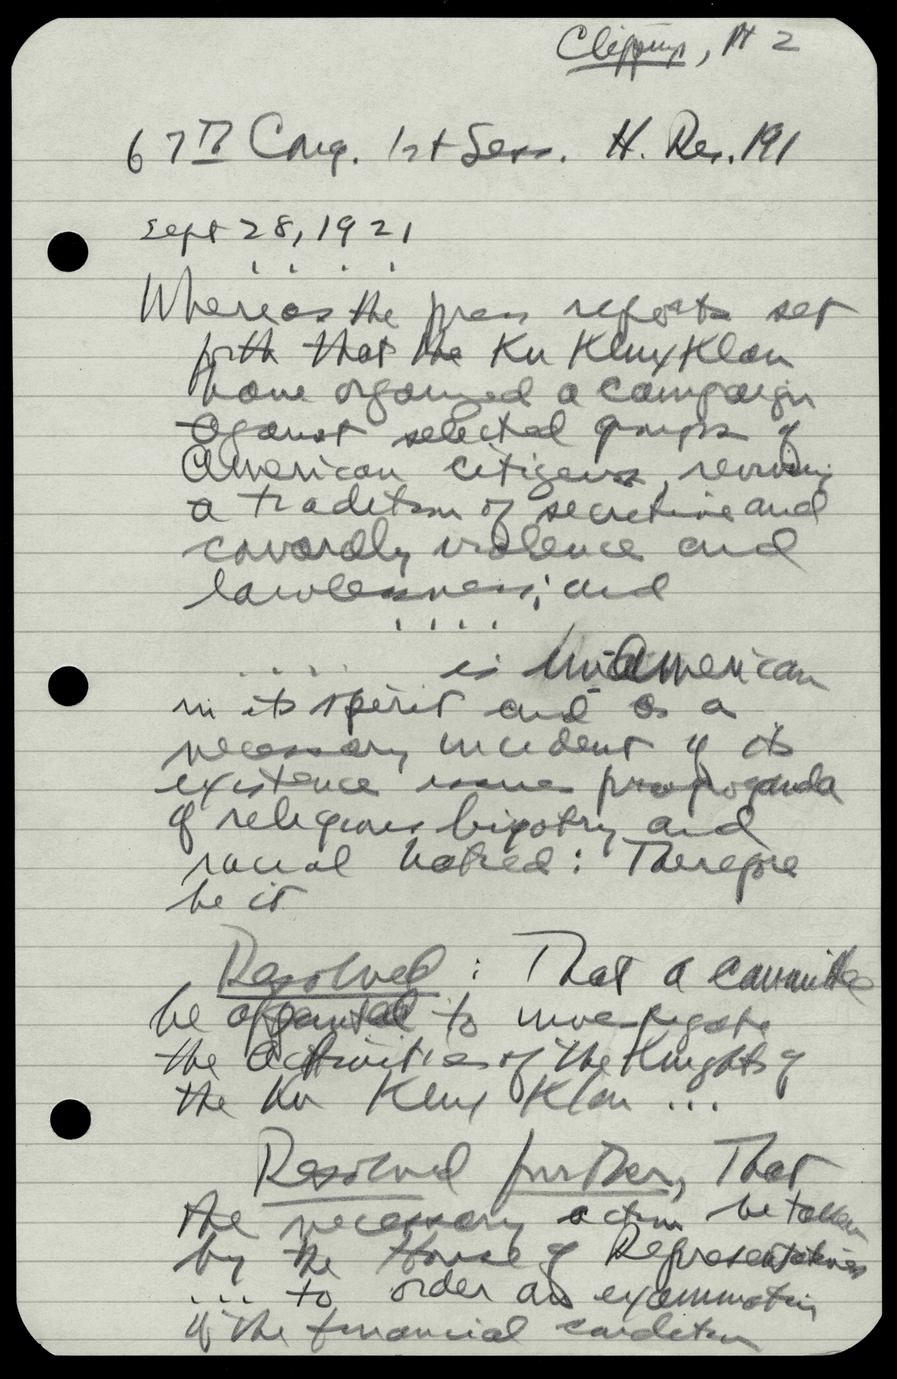 Clippings, Pt 2
67th Cong. 1st Sess. H. Res. 191
Sept 28, 1921
. . . .
Whereas the press reports set
forth that the Ku Klux Klan
have organized a campaign
against selected groups of
American citizens, reviving
a tradition of secretive and
cowardly violence and
lawlessness; and
. . . .
. . . . is unAmerican
in its spirit and as a
necessary incident of its
existence issues propaganda
of religious bigotry and
racial hatred: Therefore
be it
Resolved: That a committee
be appointed to investigate
the activities of the Knights of
the Ku Klux Klan ...
Resolved further, That
the necessary action be taken
by the House of Representatives
... to order an examination
of the financial condition